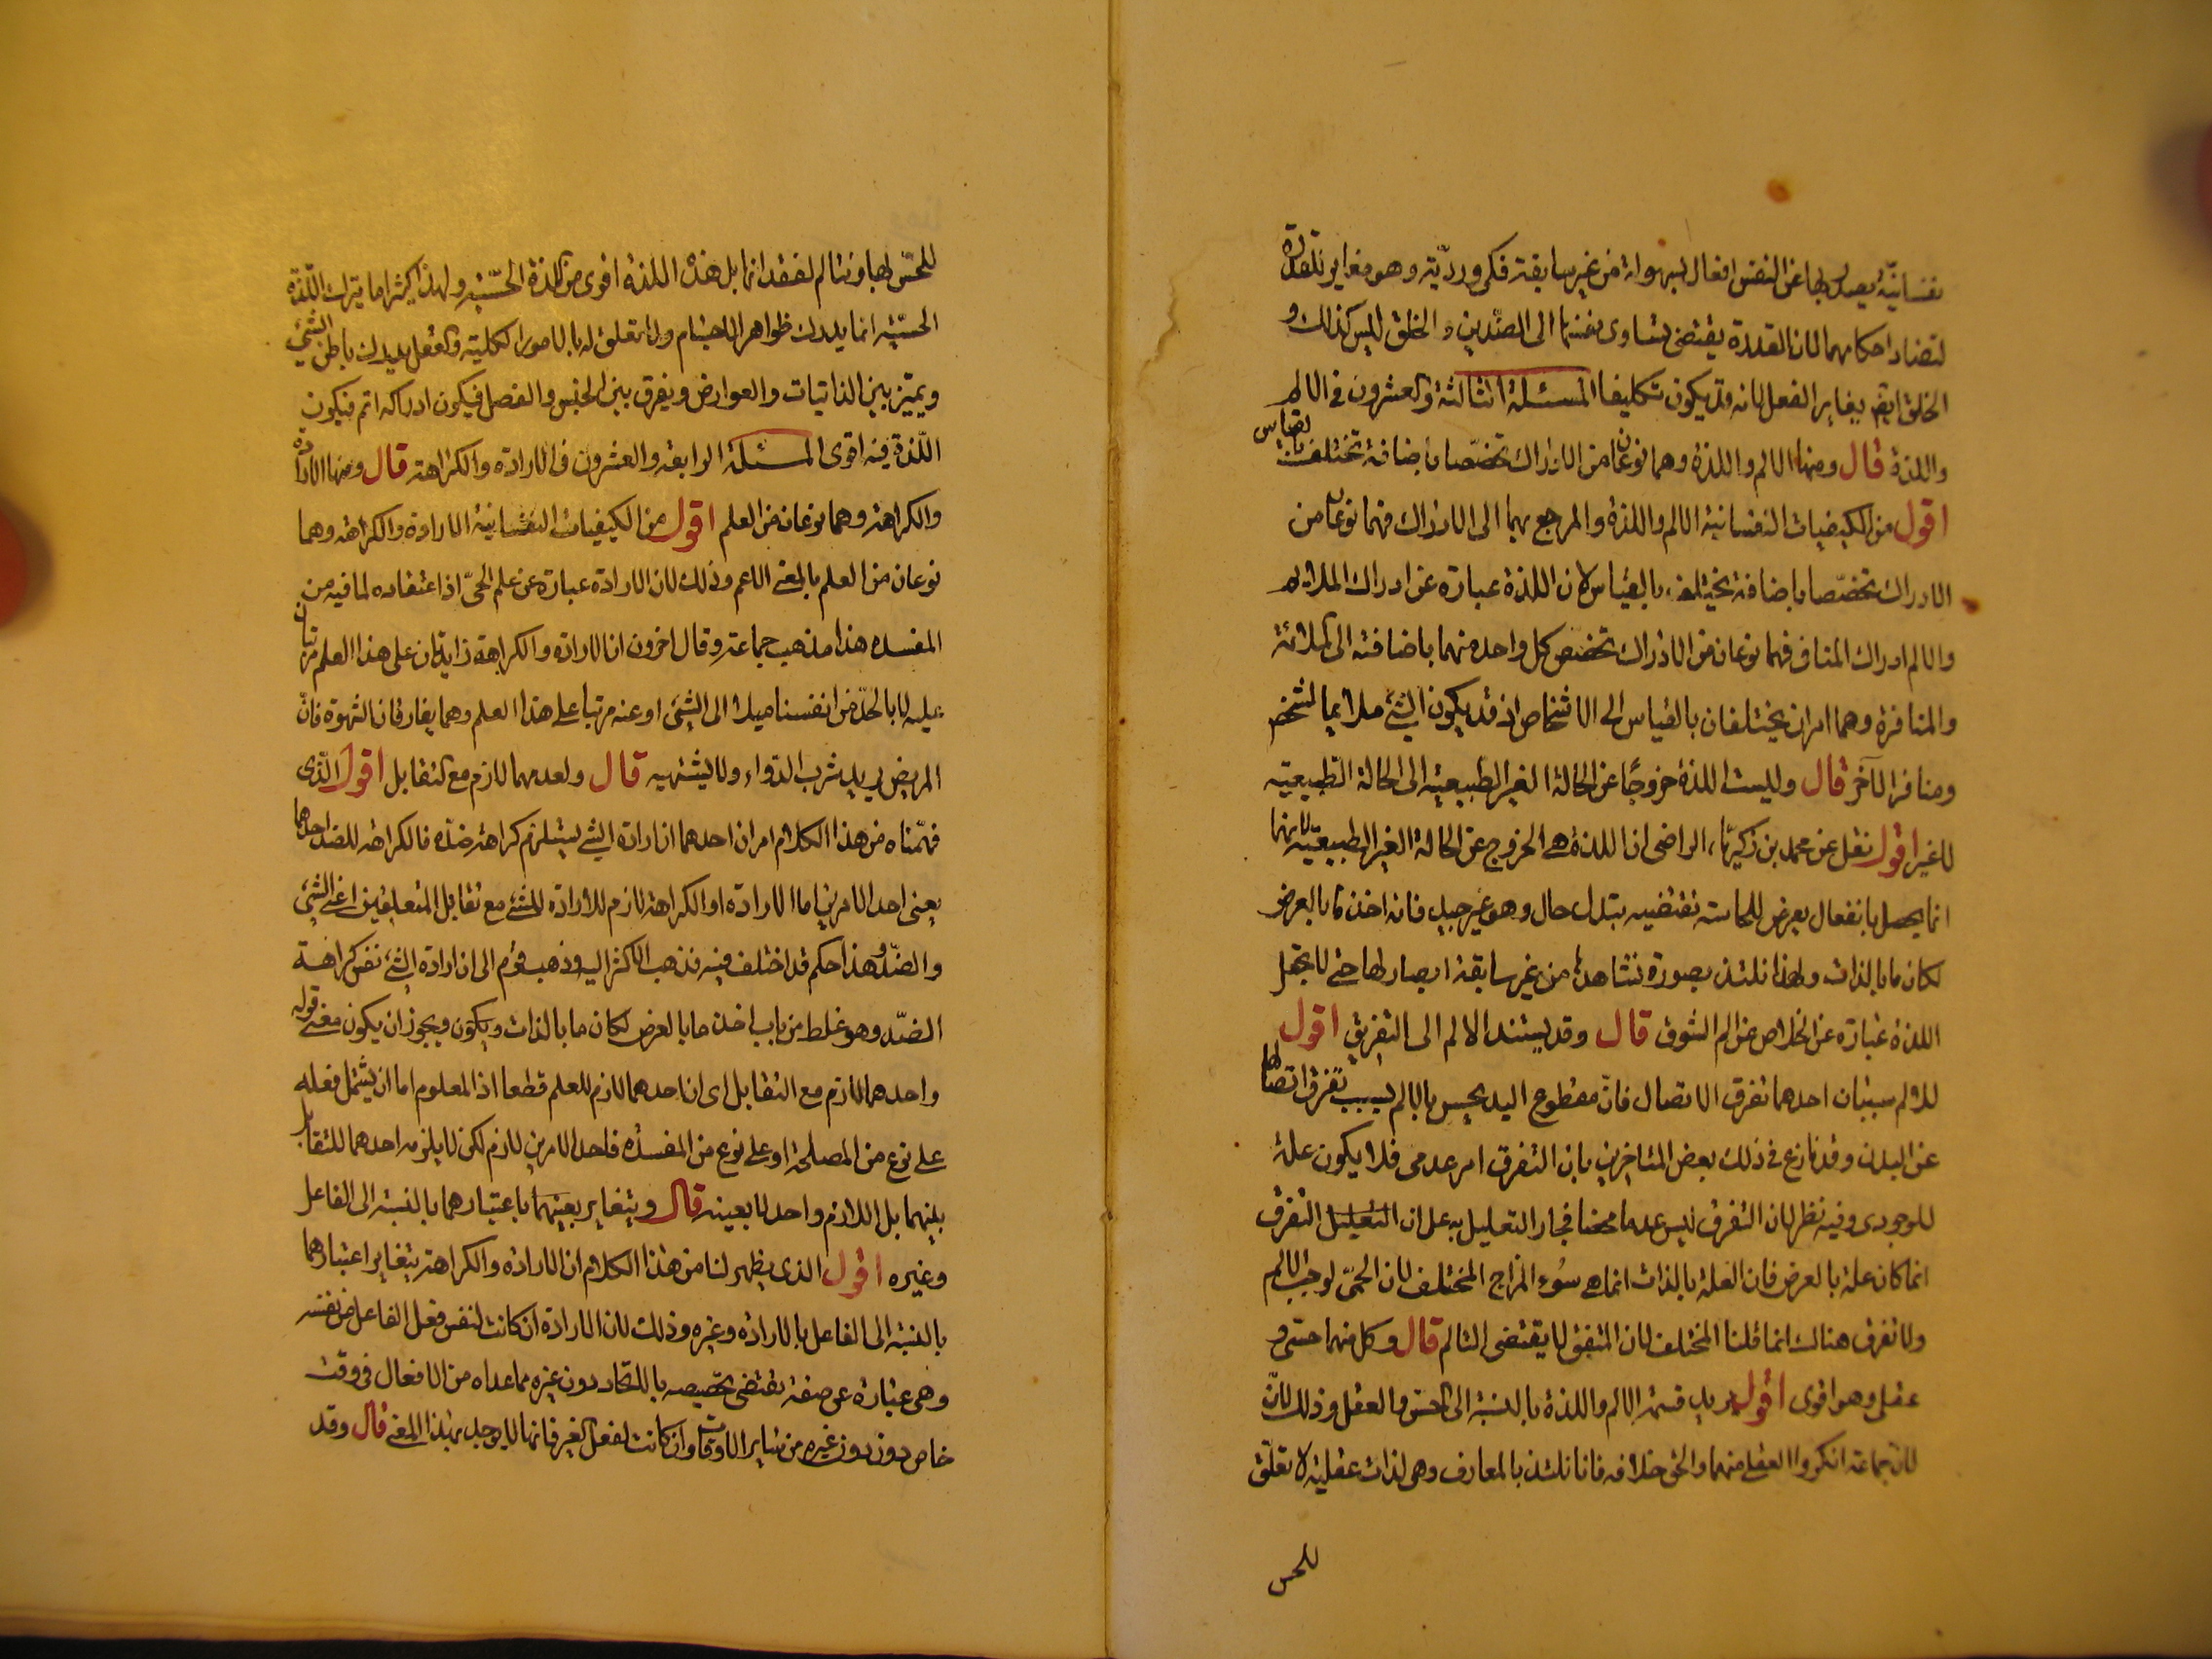 نفسانيّة يصدر بها عن النفس افعال بسهولة من غير سابقة فكر ورديّة وهو مغاير للقدرة
لتضاد احكامهما لان القدرة يقتضى تساوى نفسها الى الضّدين والخلق ليس كذلك و
الخلق ايضا يغاير الفعل لانه قد يكون تكليفا المسئلة الثالثة والعشرون فى الالم
واللذة قال ومنها الالم واللذة وهما نوعان من الادراك تخصّصا باضافة تختلف بالقياس
اقول من الكيفيات النفسانية الالم واللذة والمرجع بهما الى الادراك فهما نوعان من
الادراك تخصّصا باضافة يختلف بالقياس لان اللذة عبارة عن ادراك الملايم
والالم ادراك المنافى فهما نوعان من الادراك تخصص كل واحد منهما باضافة الى الملائمة
والمنافرة وهما امران يختلفان بالقياس الى الاشخاص اذ قد يكون الشئ ملايما لشخص
ومنافرا لآخر قال وليست اللذة خروجًا عن الحالة الغير الطبيعية الى الحالة الطبيعيّة
لاغير اقول نقل عن محمد بن زكيريّاء الراضى ان اللذة هى الخروج عن الحالة الغير الطبيعيّة لانها
انما يحصل بانفعال يعرض للحاسة تقتضيه تبدل حال وهو غير جيد فانه اخذ ما بالعرض
لكان ما بالذات ولهذا نلتذ بصورة نشاهدها من غير سابقة ابصار لها حتى لا يجعل
اللذة عبارة عن الخلاص عن الم الشوق قال وقد يستند الالم الى التفريق اقول
للالم سببان احدهما تفرق الاتصال فانّ مقطوع اليد يحسّ بالالم بسبب تفرق اتصالها
عن البدن وقد نازع فى ذلك بعض المتاخرين بان التفرق امر عدمى فلا يكون علة
للوجودى وفيه نظر لان التفرق ليس عدما محضا فجاز التعليل به على ان التعليل التفرق
انما كان علة بالعرض فان العلة بالذات انما هى سوء المزاج المختلف لان الحمّى توجب الالم
ولا تفرق هناك انما قلنا المختلف لان المتفق لا يقتضى التالم قال وكل منهما حسّى و
عقلى وهو اقوى اقول يريد قسمة الالم واللذة بالنسبة الى الحسّ والعقل وذلك لانّ
لان جماعة انكروا العقلى منهما والحق خلافه فانا نلتذ بالمعارف وهى لذات عقلية لا تعلّق
للحس
للحسّ بها ونتالم لفقدانها بل هذه اللذة اقوى من اللذة الحسّية ولهذا كثيرا ما يترك اللّذة
الحسّية انما يدرك ظواهر الاجسام ولا تعلق له بالامور الكلية والعقل يدرك باطن الشئ
ويميّز بين الذاتيات والعوارض ويفرق بين الجنس والفصل فيكون ادراكه اتم فيكون
اللّذة فيه اقوى المسئلة الرابعة والعشرون فى الارادة والكراهة قال ومنها الارادة
والكراهة وهما نوعان من العلم اقول من الكيفيات النفسانية الارادة والكراهة وهما
نوعان من العلم بالمعنى الاعم وذلك لان الارادة عبارة عن علم الحىّ اذا اعتقاده لما فيه من
المفسدة هذا مذهب جماعة وقال اخرون ان الارادة والكراهة زايدتان على هذا العلم مرتبتان
عليه لانا نجد من انفسنا ميلا الى الشئ او عنه مرتبا على هذا العلم وهما يفارقان الشهوة فانّ
المريض يريد شرب الدّواء ولا يشتهيه قال واحدهما لازم مع التقابل اقول الّذى
فهّمناه من هذا الكلام امران احدهما ان ارادة الشئ يستلزم كراهة ضدّه فالكراهة للضد احدهما
يعنى احد الامرين اما الارادة او الكراهة لازم للارادة للشئ مع تقابل المتعلقين اعنى الشئ
والضدّ وهذا حكم قد اختلف فيه فذهب الاكثر اليه وذهب قوم الى ان ارادة الشئ نفس كراهة
الضدّ وهو غلط من باب اخذ ما بالعرض لكان ما بالذات ويكون ويجوز ان يكون معنى قوله
واحدهما لازم مع التقابل اى ان احدهما لازم للعلم قطعا اذ المعلوم اما ان يشتمل فعله
على نوع من المصلحة او على نوع من المفسدة فاحد الامرين لازم لكن لا يلزمه احدهما للتقابل
بينهما بل اللازم واحد لا بعينه قال ويتغاير بعينهما باعتبارهما بالنسبة الى الفاعل
وغيره اقول الذى يظهر لنا من هذا الكلام ان الارادة والكراهة يتغاير اعتبارهما
بالنسبة الى الفاعل بالارادة وغيره وذلك لان الارادة ان كانت لنفس فعل الفاعل من نفسه
وهى عبارة عن صفة تقتضى تخصيصه بالايجاد دون غيره مما عداه من الافعال فى وقت
خاص دون دون غيره من ساير الاوقات وان كانت لفعل الغير فانها لا يوجد بهذا المعنى قال وقد